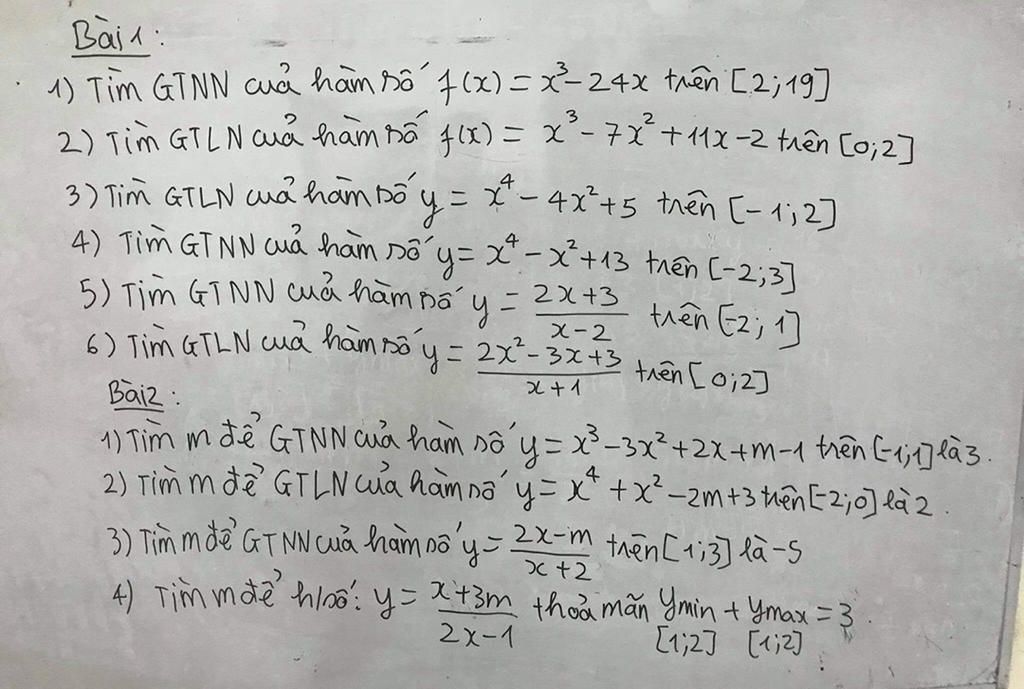 Bài 1:
1) Tìm GTNN của hàm số f(x) = x³ - 24x trên [2;19]
2) Tìm GTLN của hàm số f(x) = x³ - 7x² + 11x - 2 trên [0;2]
3) Tìm GTLN của hàm số y = x⁴ - 4x² + 5 trên [-1;2]
4) Tìm GTNN của hàm số y = x⁴ - x² + 13 trên [-2;3]
5) Tìm GTNN của hàm số y = (2x+3)/(x-2) trên [-2;1]
6) Tìm GTLN của hàm số y = (2x² - 3x + 3)/(x+1) trên [0;2]
Bài 2:
1) Tìm m để GTNN của hàm số y = x³ - 3x² + 2x + m - 1 trên [-1;1] là 3.
2) Tìm m để GTLN của hàm số y = x⁴ + x² - 2m + 3 trên [-2;0] là 2.
3) Tìm m để GTNN của hàm số y = (2x-m)/(x+2) trên [1;3] là -5
4) Tìm m để h/số: y = (x+3m)/(2x-1) thoả mãn ymin + ymax = 3.
[1;2] [1;2]